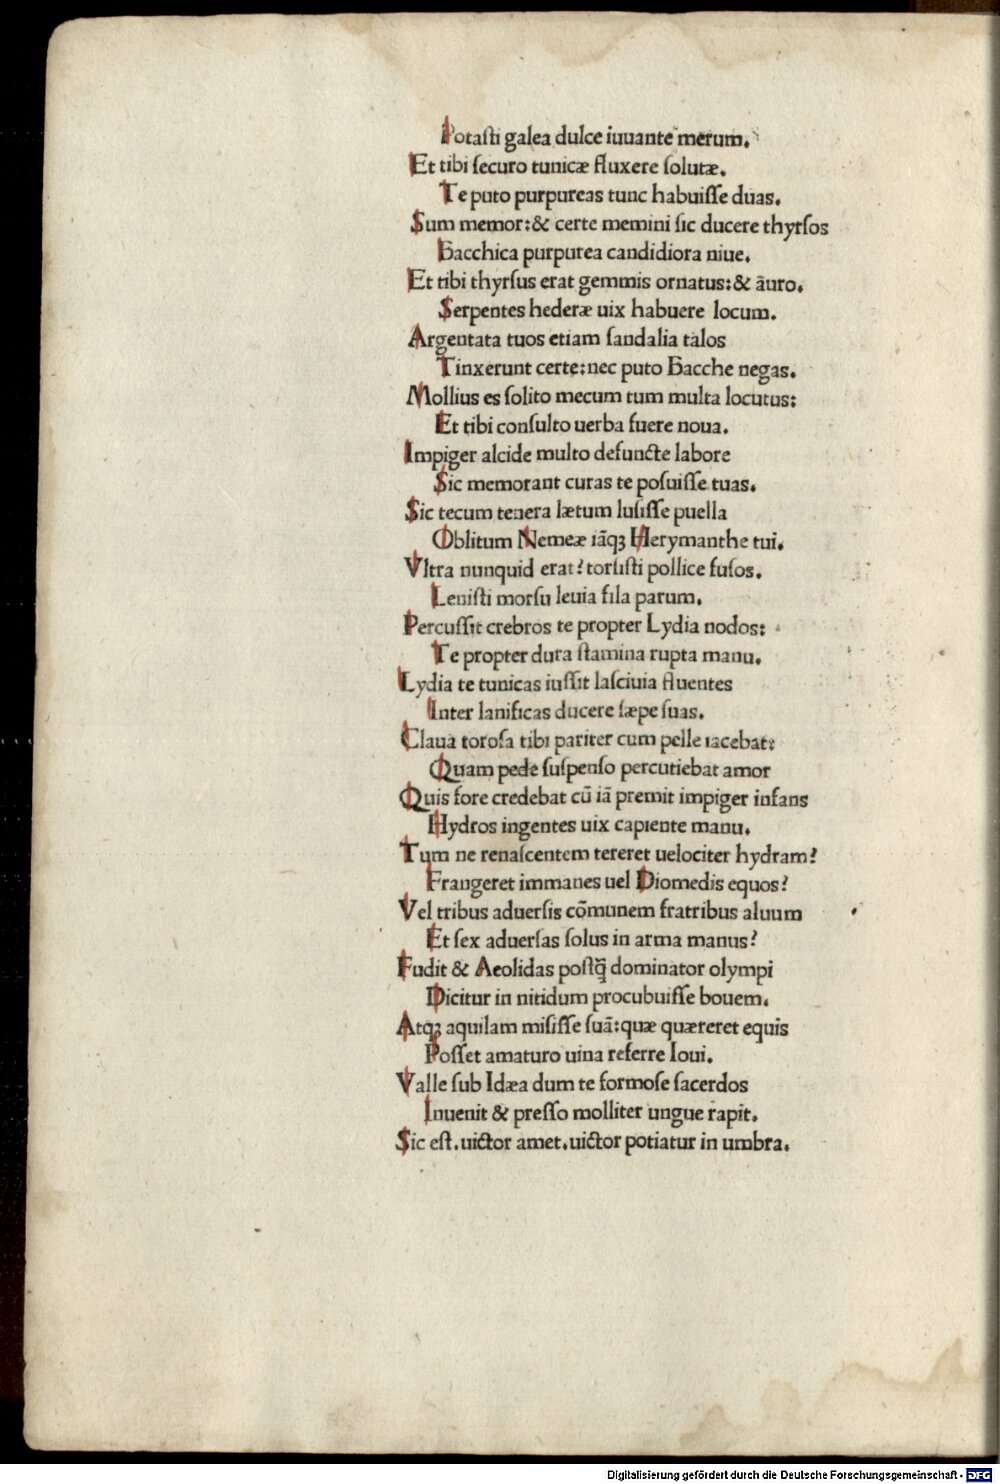 Potaſti galea dulce iuuante merum.
Et tibi ſecuro tunicæ fluxere ſolutæ.
Te puto purpureas tunc habuiſſe duas.
Sum memor:& certe memini ſic ducere thyrſos
Bacchica purpurea candidiora niue.
Et tibi thyrſus erat gemmis ornatus:& āuro.
Serpentes hederæ uix habuere locum.
Argentata tuos etiam ſandalia talos
Tinxerunt certe:nec puto Bacche negas.
Mollius es ſolito mecum tum multa locutus:
Et tibi conſulto uerba fuere noua.
Impiger alcide multo defuncte labore
Sic memorant curas te poſuiſſe tuas.
Sic tecum tenera lætum luſiſſe puella
Oblitum Nemeæ iāqꝫ Herymanthe tui.
Vltra nunquid erat? torſiſti pollice fuſos.
Leniſti morſu leuia fila parum.
Percuſſit crebros te propter Lydia nodos:
Te propter dura ſtamina rupta manu.
Lydia te tunicas iuſſit laſciuia fluentes
Inter lanificas ducere ſæpe ſuas.
Claua toroſa tibi pariter cum pelle iacebat:
Quam pede ſuſpenſo percutiebat amor
Quis fore credebat cū iā premit impiger infans
Hydros ingentes uix capiente manu.
Tum ne renaſcentem tereret uelociter hydram?
Frangeret immanes uel Diomedis equos?
Vel tribus aduerſis cōmunem fratribus aluum
Et ſex aduerſas ſolus in arma manus?
Fudit & Aeolidas poſtq̄ dominator olympi
Dicitur in nitidum procubuiſſe bouem.
Atqꝫ aquilam miſiſſe ſuā:quæ quæreret equis
Poſſet amaturo uina referre Ioui.
Valle ſub Idæa dum te formoſe ſacerdos
Inuenit & preſſo molliter ungue rapit.
Sic eſt.uictor amet.uictor potiatur in umbra.
Digitalisierung gefördert durch die Deutsche Forschungsgemeinschaft - DFG